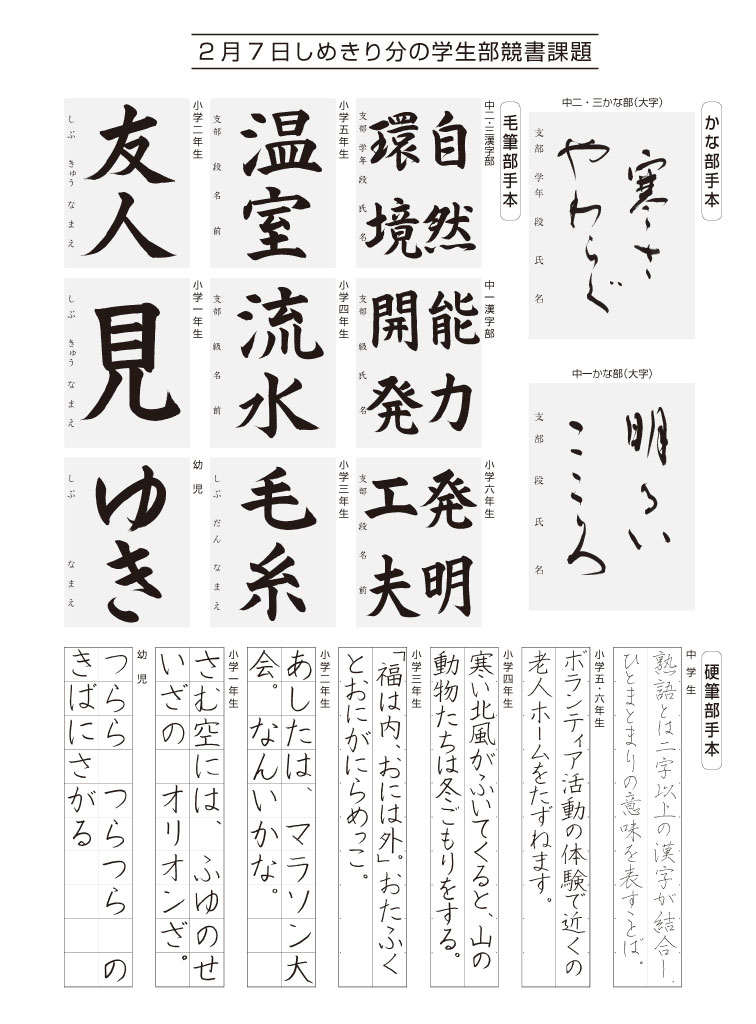 2月7日しめきり分の学生部競書課題
かな部手本
中二・三かな部(大字)
寒さ
やわらぐ
支部 学年 段 氏 名
中一かな部(大字)
明るい
こころ
支部 段 氏 名
毛筆部手本
中二・三漢字部
自然
環境
支部 学年 段 氏 名
中一漢字部
能力
開発
支部 級 氏 名
小学六年生
発明
工夫
支部 段 名前
小学五年生
温室
支部 段 名前
小学四年生
流水
支部 級 名前
小学三年生
毛糸
しぶ だん なまえ
小学二年生
友人
しぶ きゅう なまえ
小学一年生
見
しぶ きゅう なまえ
幼児
ゆき
しぶ なまえ
硬筆部手本
中学生
熟語とは二字以上の漢字が結合し、
ひとまとまりの意味を表すことば。
小学五・六年生
ボランティア活動の体験で近くの
老人ホームをたずねます。
小学四年生
寒い北風がふいてくると、山の
動物たちは冬ごもりをする。
小学三年生
「福は内、おには外」。おたふく
とおにがにらめっこ。
小学二年生
あしたは、マラソン大
会。なんいかな。
小学一年生
さむ空には、ふゆのせ
いざの オリオンざ。
幼児
つらら つらつら の
きばにさがる